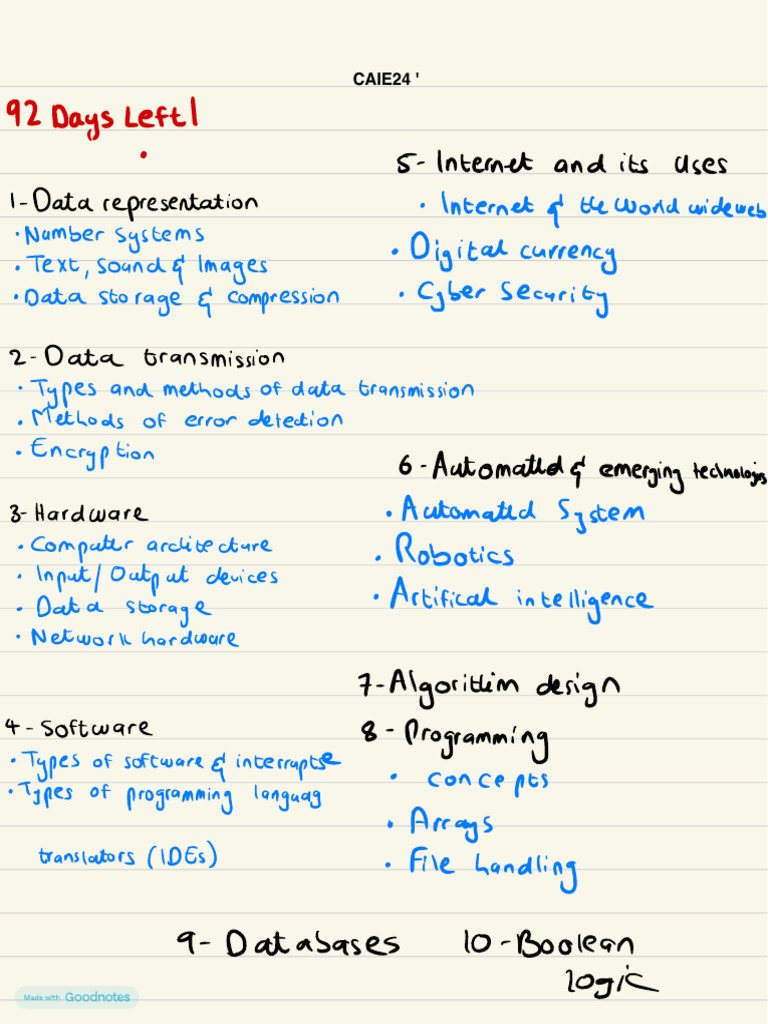 CAIE24 '
92 Days Left!
1-Data representation
• Number Systems
• Text, Sound & Images
• Data storage & compression
2-Data transmission
• Types and methods of data transmission
• Methods of error detection
• Encryption
3-Hardware
• Computer architecture
• Input/Output devices
• Data storage
• Network hardware
4-Software
• Types of software & interrupts
• Types of programming languag
translators (IDEs)
5-Internet and its Uses
• Internet & the World wide web
• Digital currency
• Cyber Security
6-Automated & emerging technologies
• Automated System
• Robotics
• Artifical intelligence
7-Algorithm design
8-Programming
• concepts
• Arrays
• File handling
9-Databases
10-Boolean
logic
Made with Goodnotes